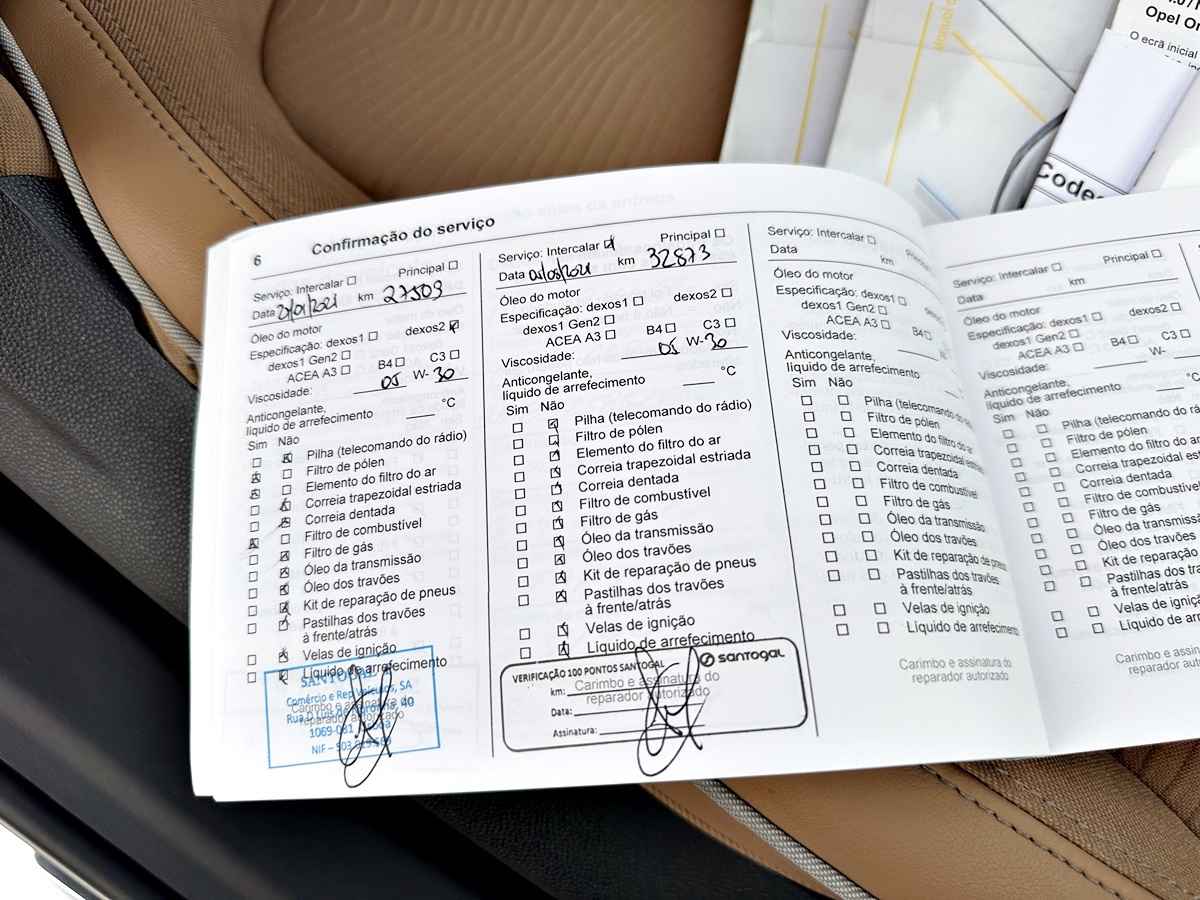 6 Confirmação do serviço
Serviço: Intercalar Principal
Data 21/01/2021 km 27509
Óleo do motor
Especificação: dexos1 dexos2
dexos1 Gen2
ACEA A3 B4 C3
Viscosidade: 05 W- 30
Anticongelante,
líquido de arrefecimento °C
Sim Não
Pilha (telecomando do rádio)
Filtro de pólen
Elemento do filtro do ar
Correia trapezoidal estriada
Correia dentada
Filtro de combustível
Filtro de gás
Óleo da transmissão
Óleo dos travões
Kit de reparação de pneus
Pastilhas dos travões
à frente/atrás
Velas de ignição
Líquido de arrefecimento
Carimbo e assinatura do
reparador autorizado
SANTOGAL
Comércio e Rep Veículos, SA
1069-081
NIF – 503
Serviço: Intercalar Principal
Data km 32873
Óleo do motor
Especificação: dexos1 dexos2
dexos1 Gen2
ACEA A3 B4 C3
Viscosidade: 05 W- 30
Anticongelante,
líquido de arrefecimento °C
Sim Não
Pilha (telecomando do rádio)
Filtro de pólen
Elemento do filtro do ar
Correia trapezoidal estriada
Correia dentada
Filtro de combustível
Filtro de gás
Óleo da transmissão
Óleo dos travões
Kit de reparação de pneus
Pastilhas dos travões
à frente/atrás
Velas de ignição
Líquido de arrefecimento
Carimbo e assinatura do
reparador autorizado
VERIFICAÇÃO 100 PONTOS SANTOGAL
santogal
km:
Data:
Assinatura:
Serviço: Intercalar
Data km
Óleo do motor
Especificação: dexos1
dexos1 Gen2
ACEA A3 B4
Viscosidade:
Anticongelante,
líquido de arrefecimento
Sim Não
Pilha (telecomando do
Filtro de pólen
Elemento do filtro do ar
Correia trapezoidal estriada
Correia dentada
Filtro de combustível
Filtro de gás
Óleo da transmissão
Óleo dos travões
Kit de reparação de pneus
Pastilhas dos travões
à frente/atrás
Velas de ignição
Líquido de arrefecimento
Carimbo e assinatura do
reparador autorizado
Serviço: Intercalar Principal
Data km
Óleo do motor
Especificação: dexos1 dexos2
dexos1 Gen2
ACEA A3 B4 C3
Viscosidade: W-
Anticongelante,
líquido de arrefecimento °C
Sim Não
Pilha (telecomando do rádio)
Filtro de pólen
Elemento do filtro do ar
Correia trapezoidal estriada
Correia dentada
Filtro de combustível
Filtro de gás
Óleo da transmissão
Óleo dos travões
Kit de reparação
Pastilhas dos travões
à frente/atrás
Velas de ignição
Líquido de
Carimbo e assinatura
reparador autorizado
Opel
O ecrã inicial